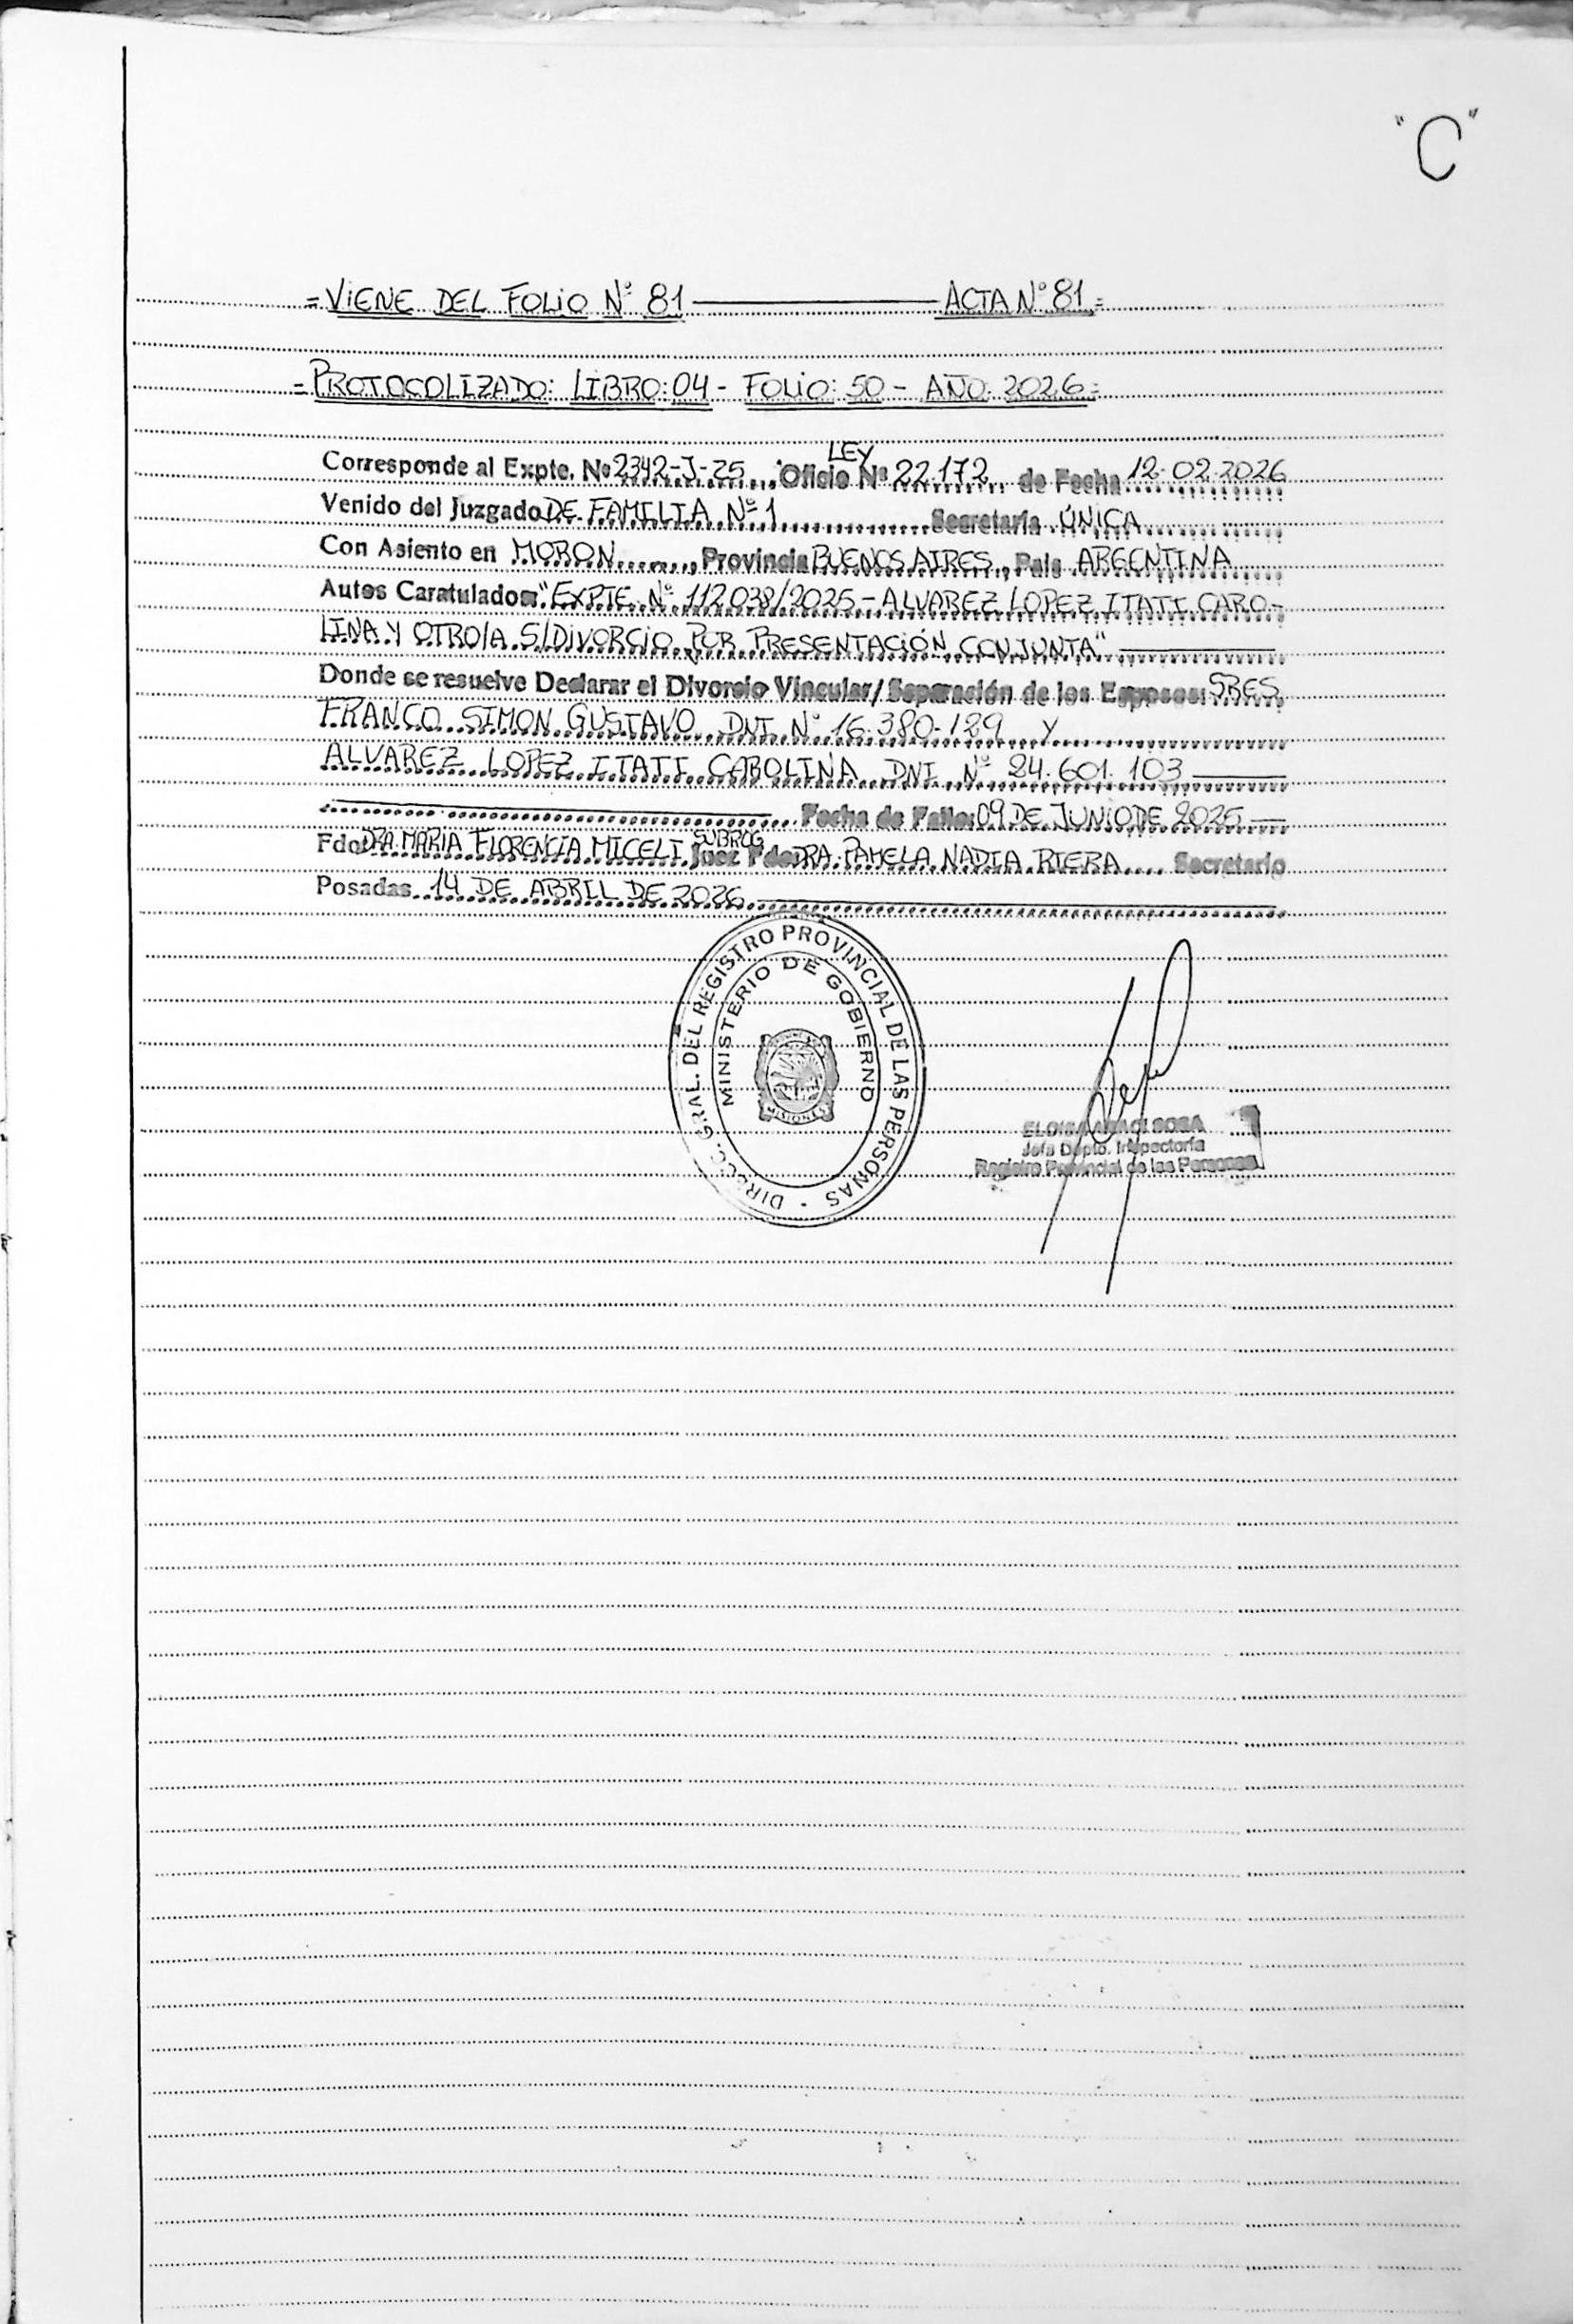 "C"
=VIENE DEL FOLIO Nº 81 ———— ACTA Nº 81=
=PROTOCOLIZADO: LIBRO: 04 - FOLIO: 50 - AÑO: 2026=
LEY
Corresponde al Expte. Nº 2342-J-25, Oficio Nº 22.172 de Fecha 12-02-2026
Venido del Juzgado DE FAMILIA Nº 1 Secretaría ÚNICA
Con Asiento en MORON, Provincia BUENOS AIRES, País ARGENTINA
Autos Caratulados: "EXPTE. Nº 112038/2025 - ALVAREZ LOPEZ ITATI CARO-
LINA Y OTRO/A S/DIVORCIO POR PRESENTACIÓN CONJUNTA"
Donde se resuelve Declarar el Divorcio Vincular/Separación de los Esposos: SRES.
FRANCO SIMON GUSTAVO DNI Nº 16.380.189 Y
ALVAREZ LOPEZ ITATI CAROLINA DNI Nº 24.601.103
Fecha de Fallo: 09 DE JUNIO DE 2025
SUBROG
Fdo: DRA. MARIA FLORENCIA MICELI Juez Fdo: DRA. PAMELA NADIA RIERA Secretario
Posadas 14 DE ABRIL DE 2026
DIRECC. GRAL. DEL REGISTRO PROVINCIAL DE LAS PERSONAS
MINISTERIO DE GOBIERNO
MISIONES
SOSA
Jefa Dpto. Inspectoría
Registro Provincial de las Personas